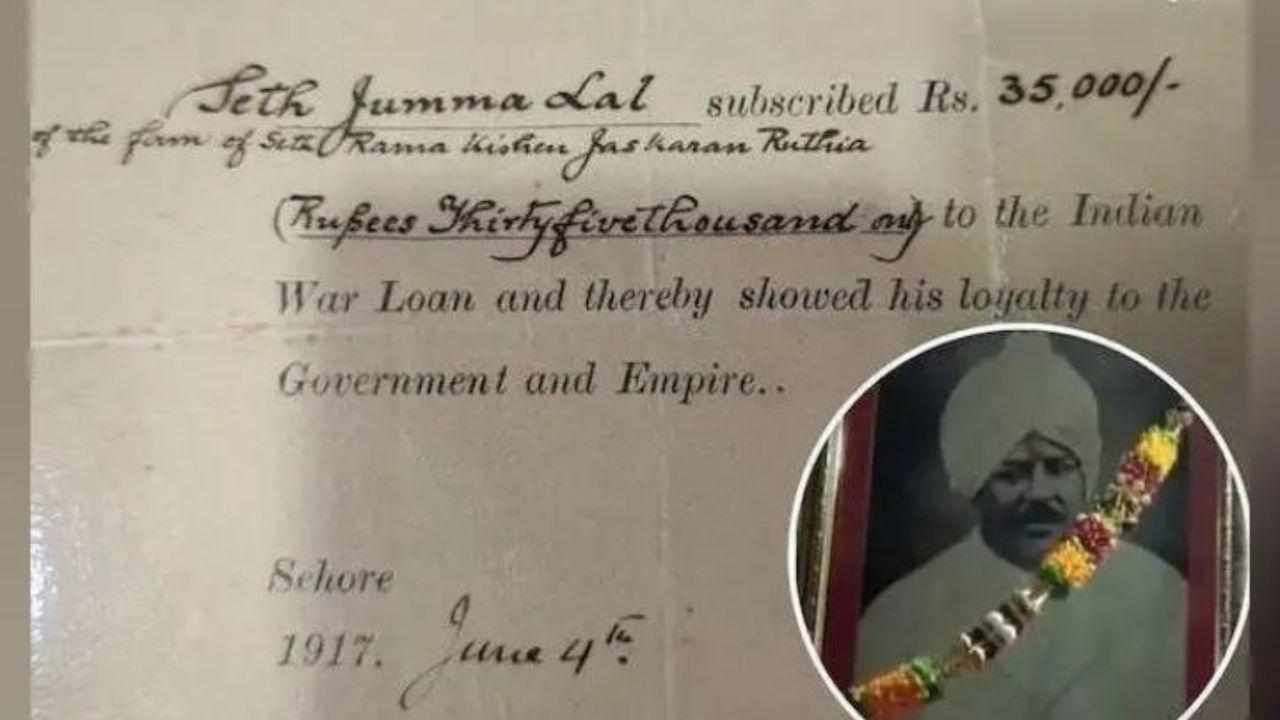 Seth Jumma Lal subscribed Rs. 35,000/-
of the firm of Seth Rama Kishen Jaskaran Ruthia
(Rupees Thirtyfivethousand only) to the Indian
War Loan and thereby showed his loyalty to the
Government and Empire..
Sehore
1917. June 4th.